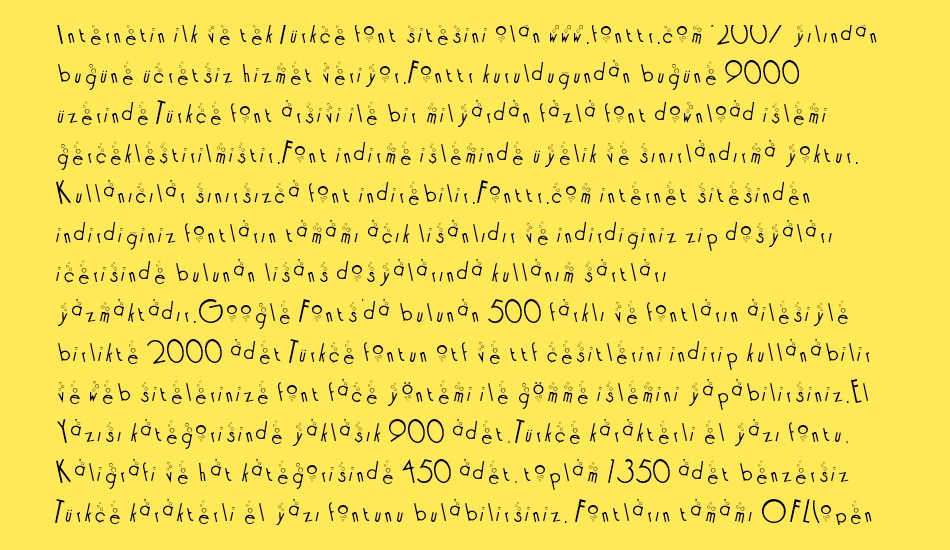 İnternetin ilk ve tek Türkçe font sitesini olan www.fonttr.com '2007 yılından
bugüne ücretsiz hizmet veriyor.Fonttr kurulduğundan bugüne 9000
üzerinde Türkçe font arşivi ile bir milyardan fazla font download işlemi
gerçekleştirilmiştir.Font indirme işleminde üyelik ve sınırlandırma yoktur.
Kullanıcılar sınırsızca font indirebilir.Fonttr.com internet sitesinden
indirdiginiz fontların tamamı açık lisanlıdır ve indirdiginiz zip dosyaları
içerisinde bulunan lisans dosyalarında kullanım şartları
yazmaktadır.Google Fonts'da bulunan 500 farklı ve fontların ailesiyle
birlikte 2000 adet Türkçe fontun otf ve ttf çeşitlerini indirip kullanabilir
ve web sitelerinize font face yöntemi ile gömme işlemini yapabilirsiniz.El
Yazısı kategorisinde yaklaşık 900 adet,Türkçe karakterli el yazı fontu,
Kaligrafi ve hat kategorisinde 450 adet,toplam 1350 adet benzersiz
Türkçe karakterli el yazı fontunu bulabilirsiniz. Fontların tamamı OFL(open